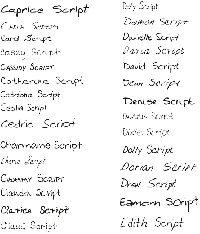 Caprice Script
Carol Script
Casey Script
Cassidy Script
Catherine Script
Catriona Script
Cecilia Script
Cedric Script
Charmaine Script
Script
Chummy Script
Script
Clarice Script
Claud Script
Daly Script
Damon Script
Danielle Script
Script
David Script
Dean Script
Denise Script
Script
Script
Dolly Script
Dorian Script
Drew Script
Eamonn Script
Edith Script